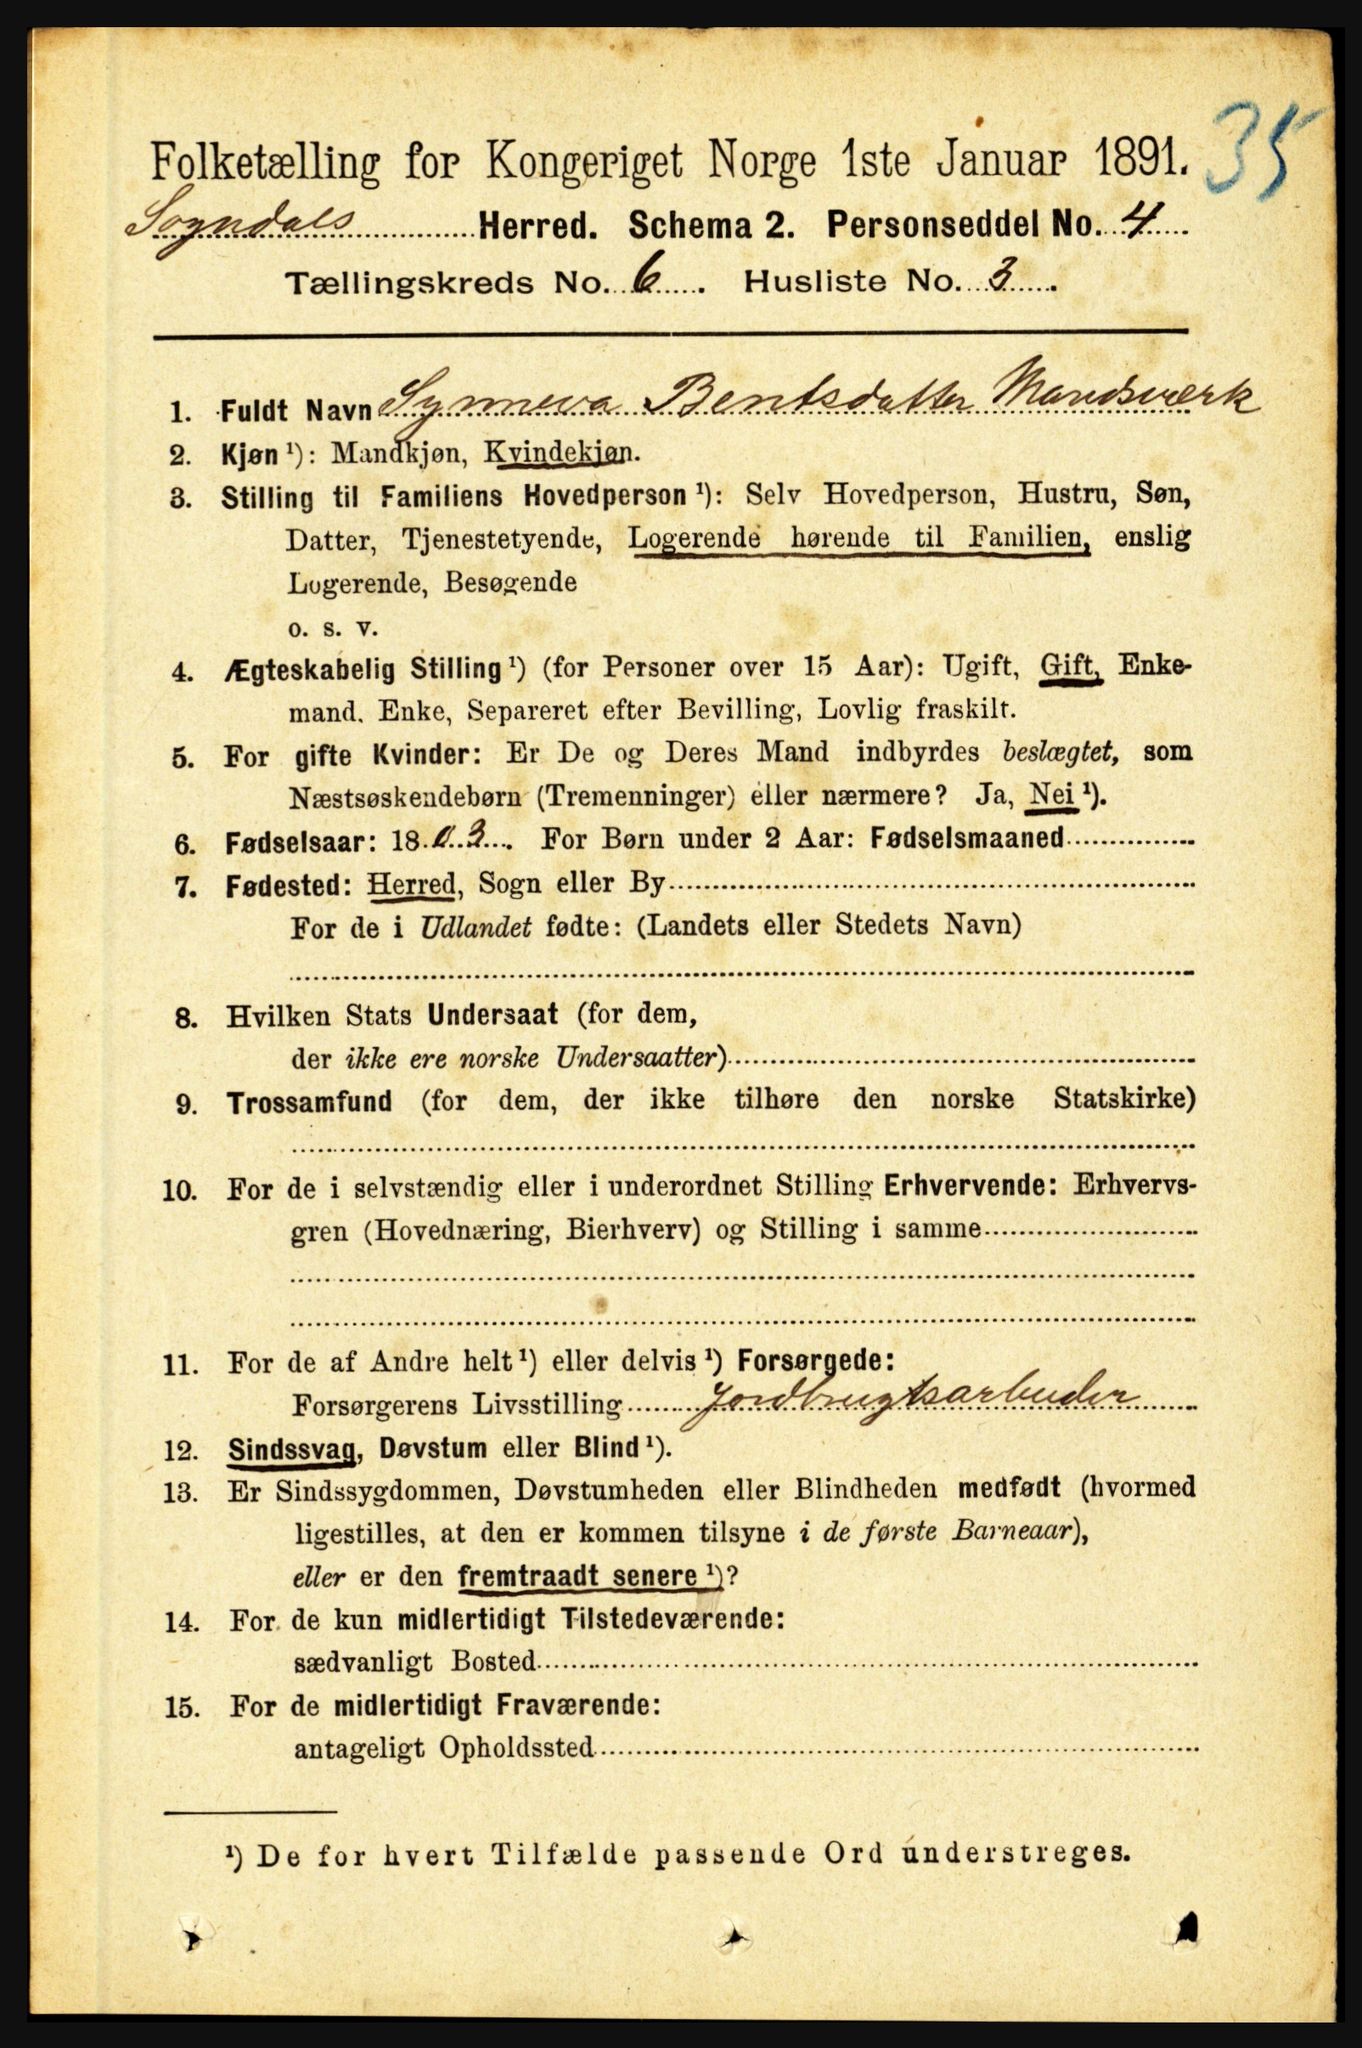 35
Folketælling for Kongeriget Norge 1ste Januar 1891.
Sogndals Herred. Schema 2. Personseddel No. 4
Tællingskreds No. 6. Husliste No. 3.
1. Fuldt Navn Synneva Bentsdatter Mandsværk
2. Kjøn¹): Mandkjøn, Kvindekjøn.
3. Stilling til Familiens Hovedperson¹): Selv Hovedperson, Hustru, Søn,
Datter, Tjenestetyende, Logerende hørende til Familien, enslig
Logerende, Besøgende
o. s. v.
4. Ægteskabelig Stilling¹) (for Personer over 15 Aar): Ugift, Gift, Enke-
mand, Enke, Separeret efter Bevilling, Lovlig fraskilt.
5. For gifte Kvinder: Er De og Deres Mand indbyrdes beslægtet, som
Næstsøskendebørn (Tremenninger) eller nærmere? Ja, Nei¹).
6. Fødselsaar: 1803. For Børn under 2 Aar: Fødselsmaaned
7. Fødested: Herred, Sogn eller By
For de i Udlandet fødte: (Landets eller Stedets Navn)
8. Hvilken Stats Undersaat (for dem,
der ikke ere norske Undersaatter)
9. Trossamfund (for dem, der ikke tilhøre den norske Statskirke)
10. For de i selvstændig eller i underordnet Stilling Erhvervende: Erhvervs-
gren (Hovednæring, Bierhverv) og Stilling i samme
11. For de af Andre helt¹) eller delvis¹) Forsørgede:
Forsørgerens Livsstilling Jordbrugtsarbeider
12. Sindssvag, Døvstum eller Blind¹).
13. Er Sindssygdommen, Døvstumheden eller Blindheden medfødt (hvormed
ligestilles, at den er kommen tilsyne i de første Barneaar),
eller er den fremtraadt senere¹)?
14. For de kun midlertidigt Tilstedeværende:
sædvanligt Bosted
15. For de midlertidigt Fraværende:
antageligt Opholdssted
¹) De for hvert Tilfælde passende Ord understreges.